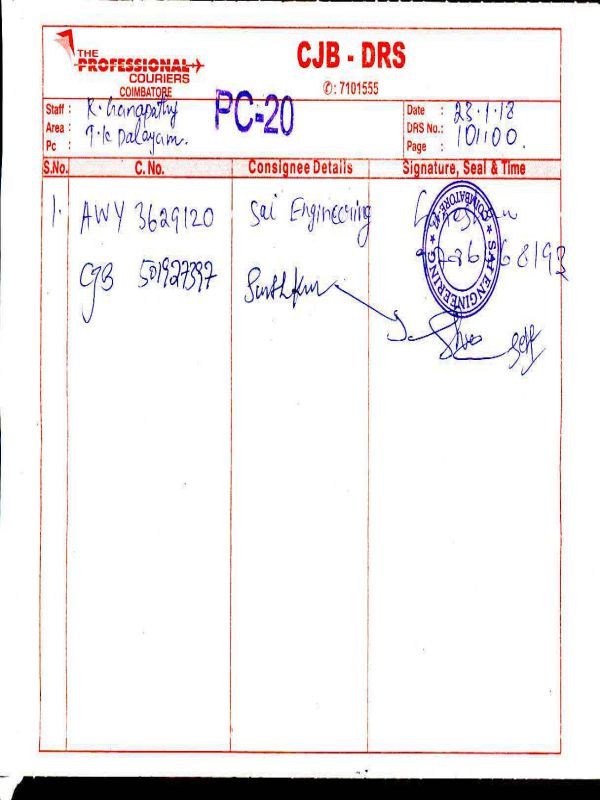 THE
PROFESSIONAL
COURIERS
COIMBATORE
CJB - DRS
✆: 7101555
Staff : R. Ganapathy
Area : T.K Palayam.
Pc :
PC-20
Date : 23.1.18
DRS No.: 101100.
Page :
S.No. C. No. Consignee Details Signature, Seal & Time
1. AWY 3629120 Sai Engineering
CJB 501927397
SAI ENGINEERING ★ COIMBATORE ★
self